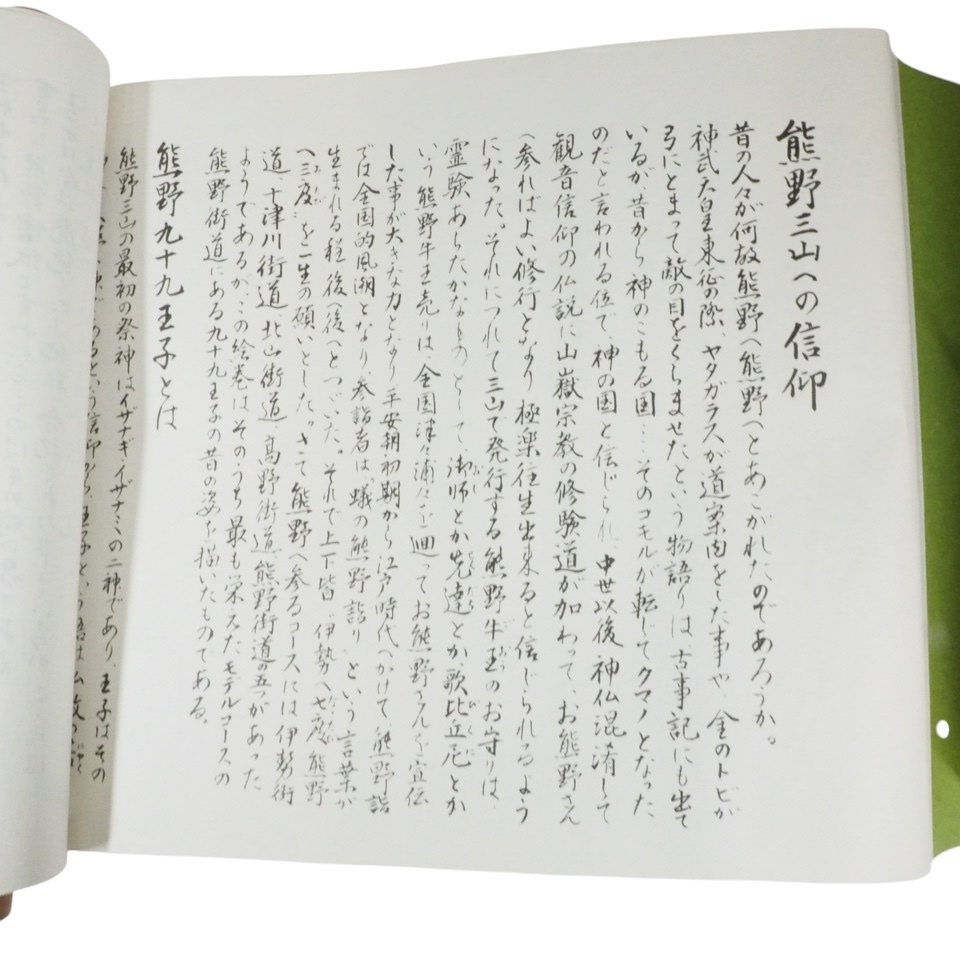 熊野三山への信仰
昔の人々が何故熊野へ熊野へとあこがれたのであろうか。
神武天皇東征の際、ヤタガラスが道案内をした事や、金のトビが
弓にとまって敵の目をくらませたという物語りは、古事記にも出て
いるが、昔から神のこもる国……そのコモルが転じてクマノとなった
のだと言われる位で、神の国と信じられ、中世以後神仏混淆して
観音信仰の仏説に山嶽宗教の修験道が加わって、お熊野さん
へ参ればよい修行となり極楽往生出来ると信じられるよう
になった。それにつれて三山で発行する熊野牛玉のお守りは、
霊験あらたかなものとして、御師とか先達とか、歌比丘尼とか
いう熊野牛王売りは、全国津々浦々を廻ってお熊野さんを宣伝
した事が大きな力となり平安朝初期から江戸時代へかけて、熊野詣
では全国的風潮となり、参詣者は、蟻の熊野詣り、という言葉が
生まれる程後後へとつづいた。それで上下皆、伊勢へ七度熊野
へ三度…を一生の願いとした。さて熊野へ参るコースには伊勢街
道、十津川街道、北山街道、高野街道、熊野街道の五つがあった
ようであるが、この絵巻はそのうち最も栄えたモデルコースの
熊野街道にある九十九王子の昔の姿を描いたものである。
熊野九十九王子とは
熊野三山の最初の祭神はイザナギ・イザナミの二神であり、王子はその
であるという信仰から、王子という語は仏教の